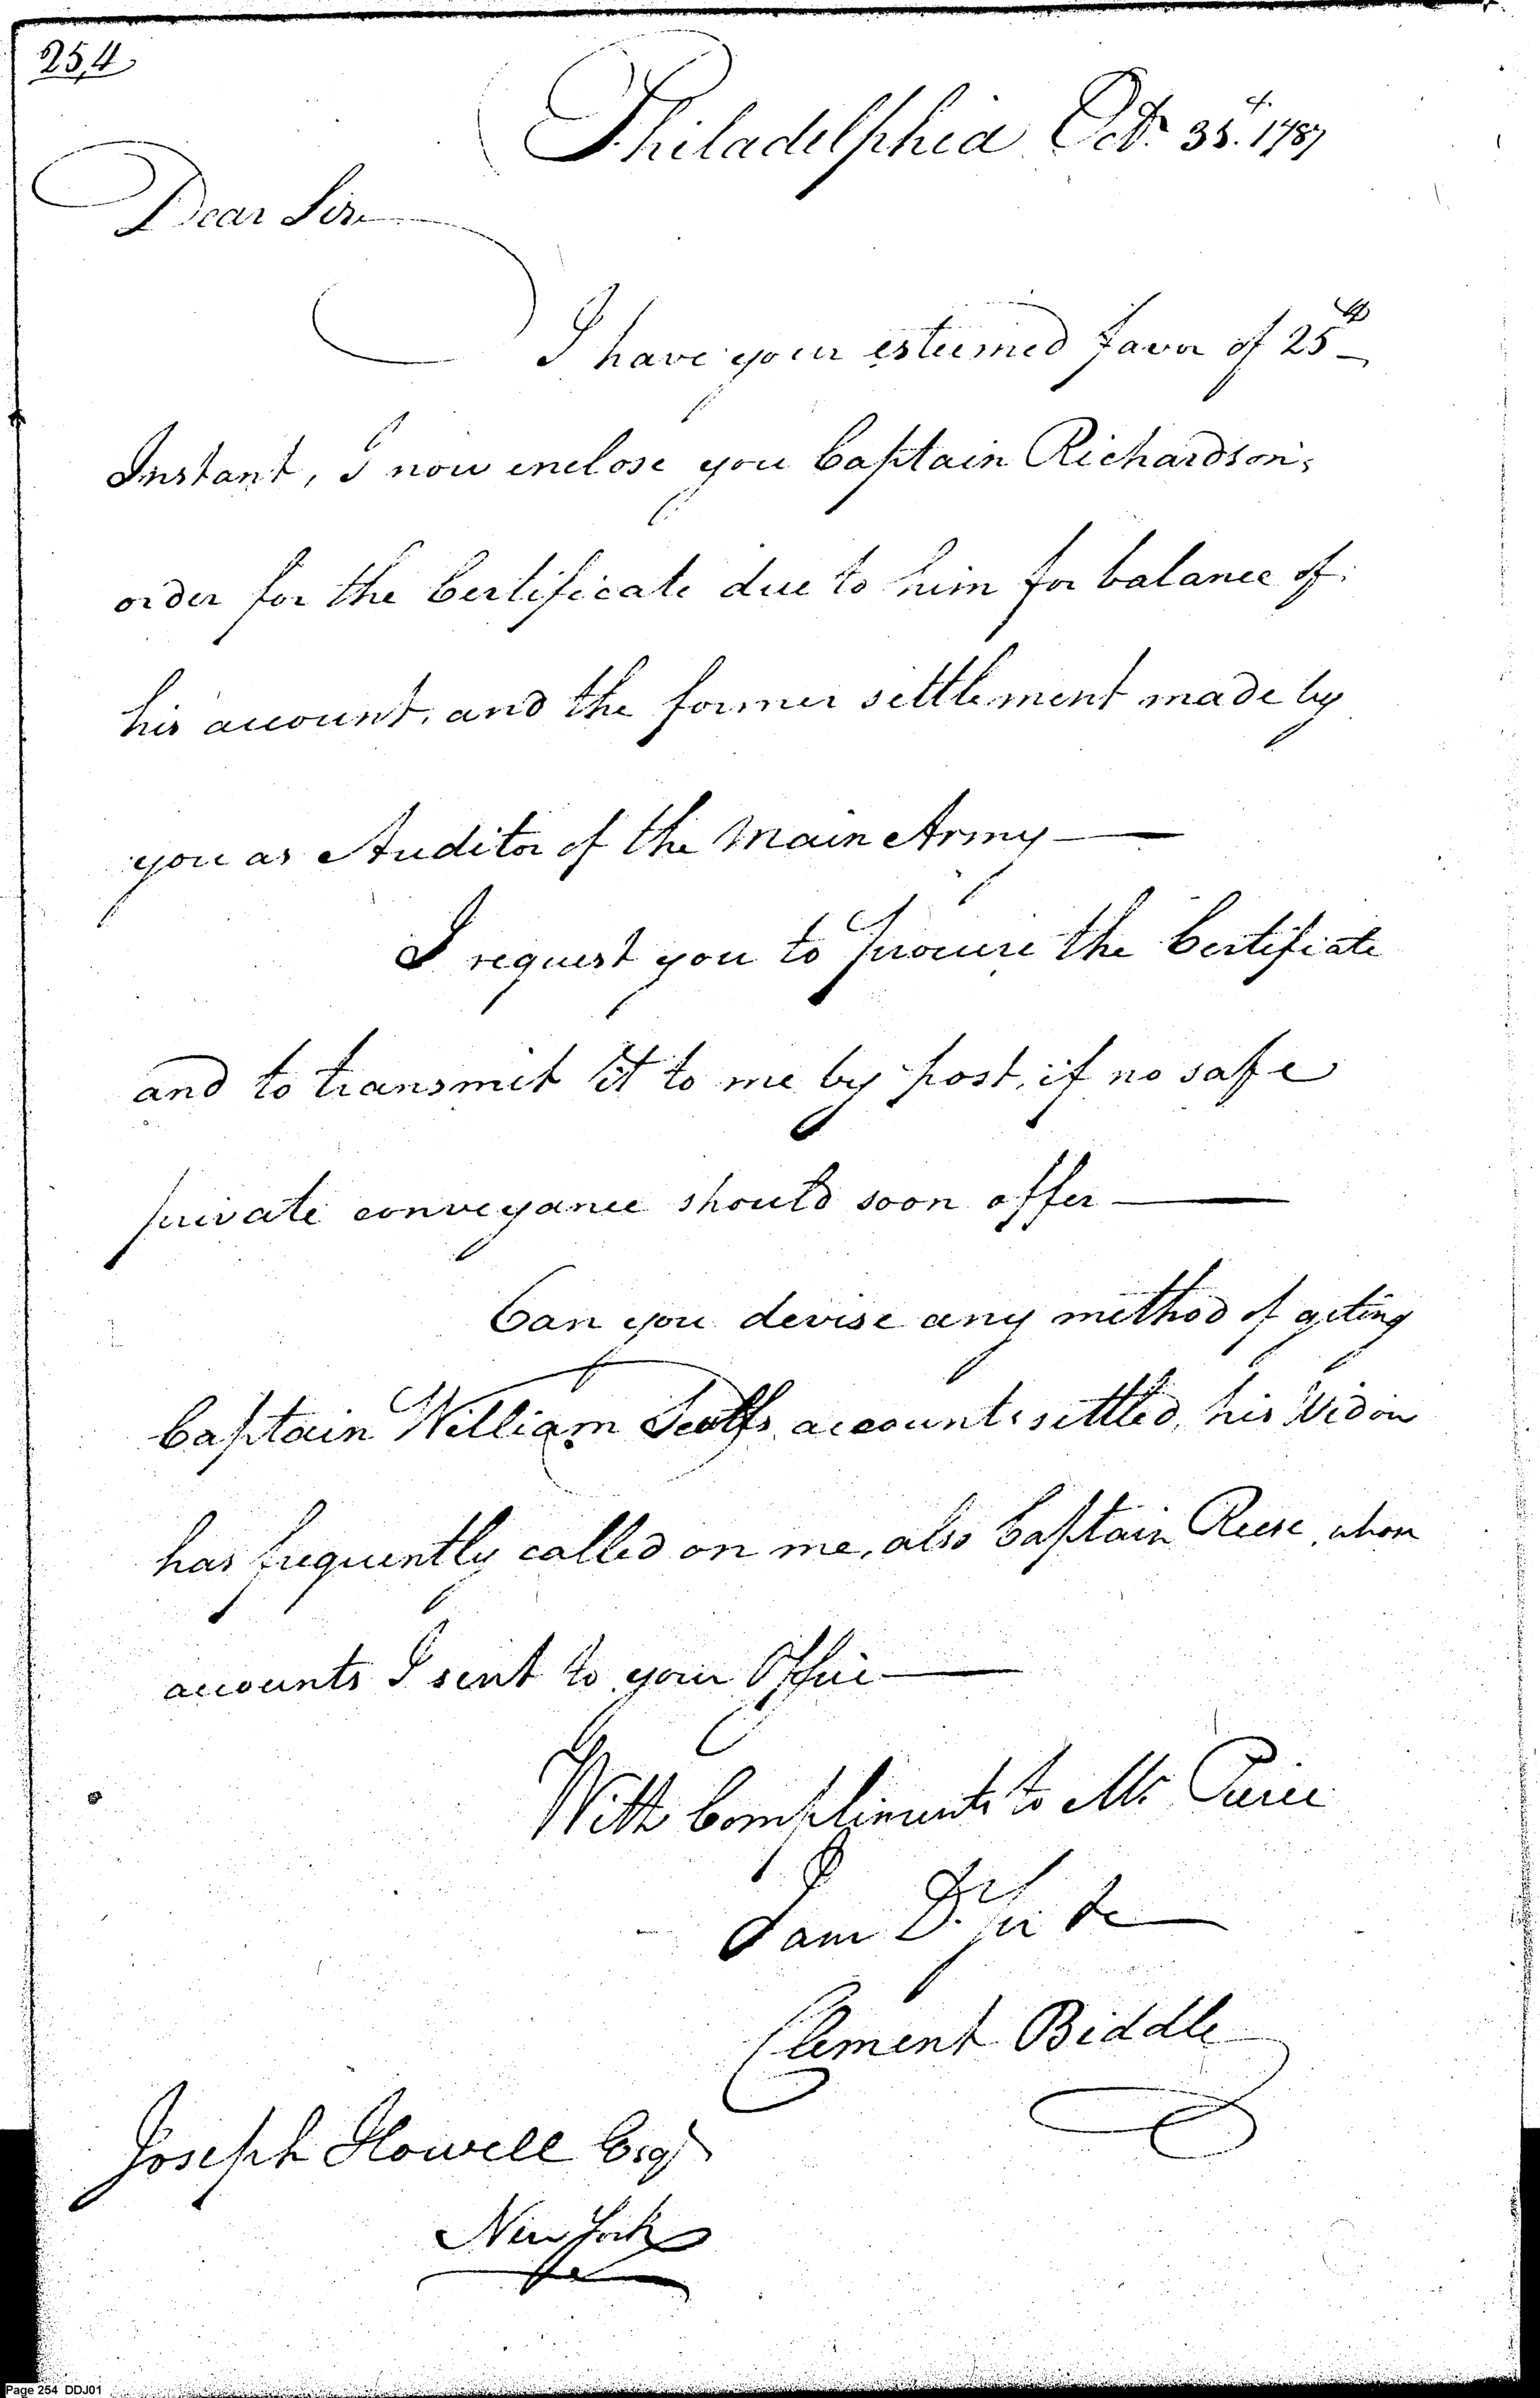 254
Philadelphia Octr. 31st. 1787
Dear Sir
I have your esteemed favor of 25th
Instant, I now enclose you Captain Richardson's
order for the Certificate due to him for balance of
his account, and the former settlement made by
you as Auditor of the Main Army
I request you to procure the Certificate
and to transmit it to me by post, if no safe
private conveyance should soon offer
Can you devise any method of geting
Captain William Scotts accounts settled, his Widow
has frequently called on me, also Captain Reese, whose
accounts I sent to your Office
With Compliments to Mr Pierce
I am Dr. Sir &c
Clement Biddle
Joseph Howell Esqr
New York
Page 254 DDJ01